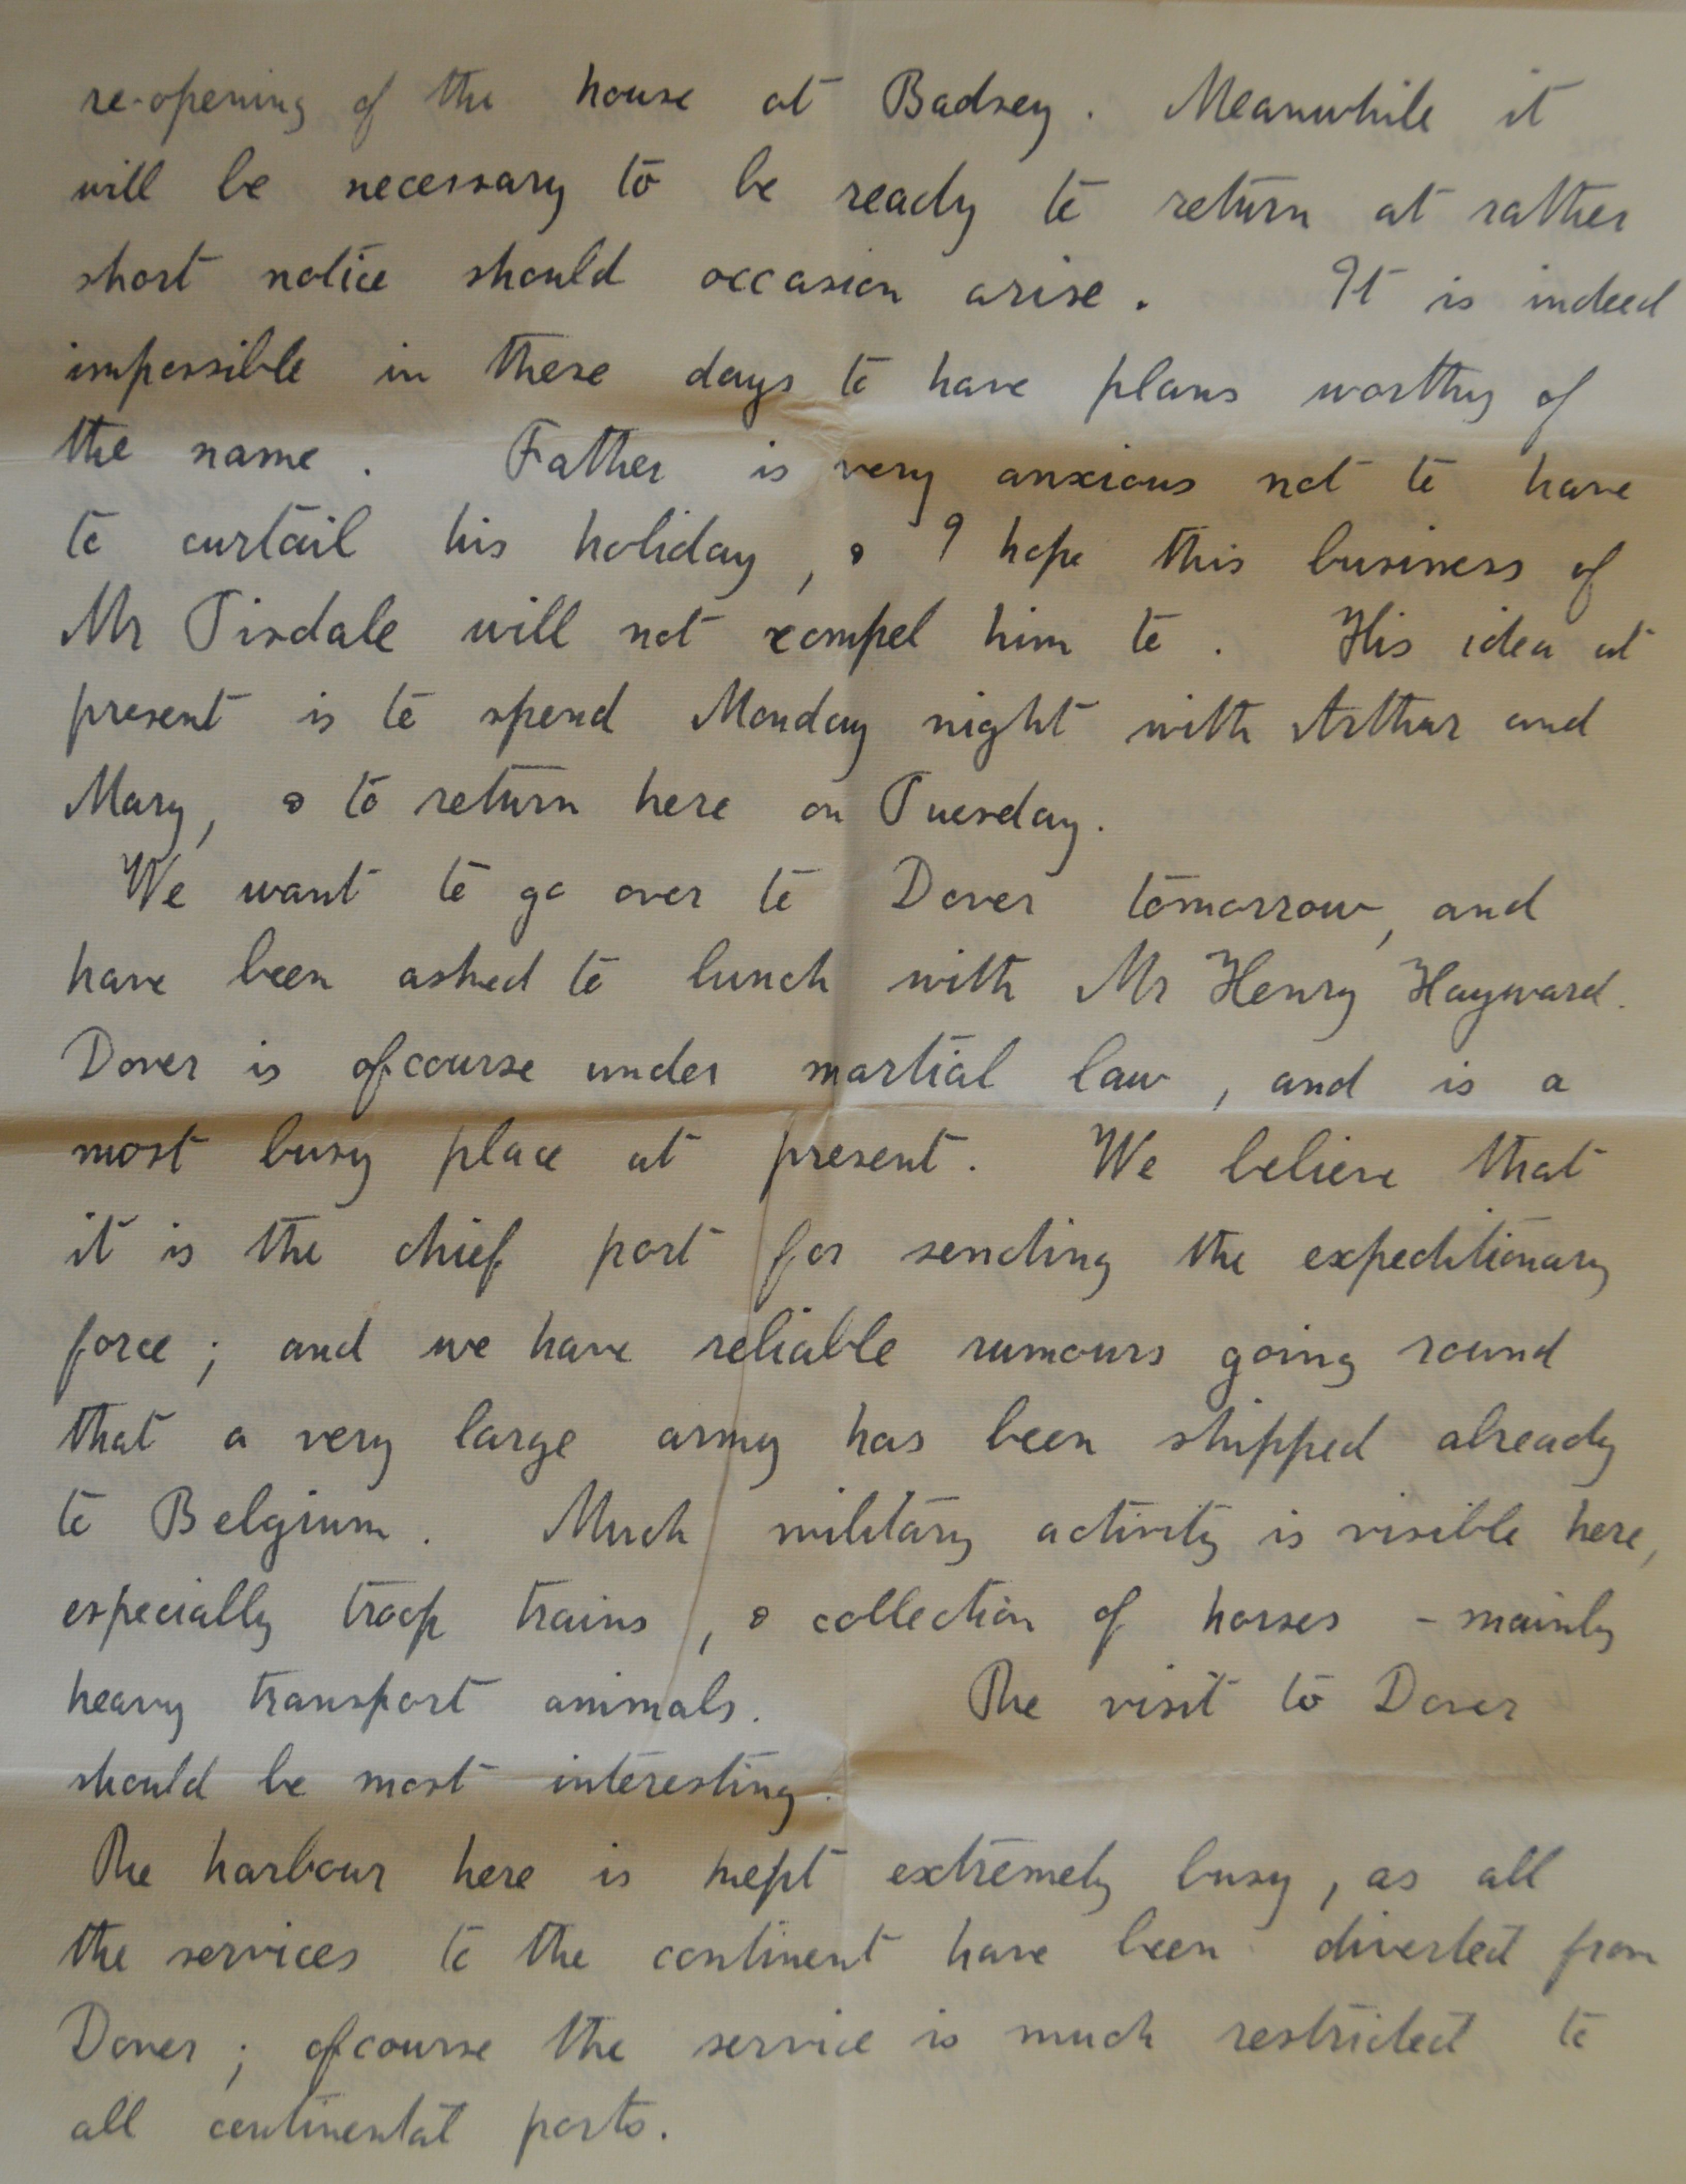 re-opening of the house at Badsey. Meanwhile it
will be necessary to be ready to return at rather
short notice should occasion arise. It is indeed
impossible in these days to have plans worthy of
the name. Father is very anxious not to have
to curtail his holiday, & I hope this business of
Mr Tisdale will not compel him to. His idea at
present is to spend Monday night with Arthur and
Mary, & to return here on Tuesday.
We want to go over to Dover tomorrow, and
have been asked to lunch with Mr Henry Hayward.
Dover is ofcourse under martial law, and is a
most busy place at present. We believe that
it is the chief port for sending the expeditionary
force; and we have reliable rumours going round
that a very large army has been shipped already
to Belgium. Much military activity is visible here,
especially troop trains, & collection of horses - mainly
heavy transport animals. The visit to Dover
should be most interesting.
The harbour here is kept extremely busy, as all
the services to the continent have been diverted from
Dover; ofcourse the service is much restricted to
all continental ports.